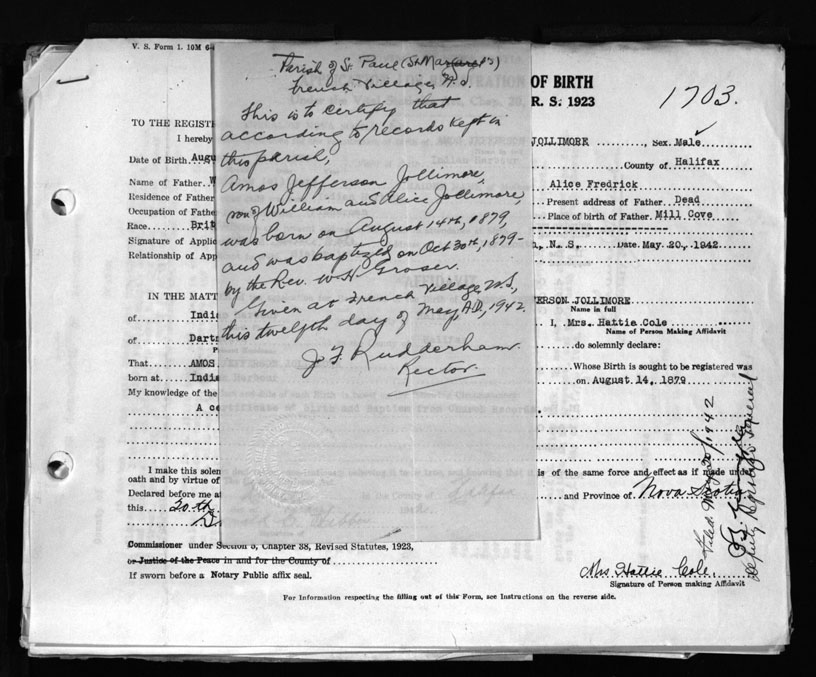 V. S. Form 1. 10M 6-
OF BIRTH
R. S. 1923
1703.
Parish of St. Paul (St Margaret's)
French Village, N.S.
This is to certify that
according to records kept in
this parish,
Amos Jefferson Jollimore,
son of William and Alice Jollimore,
was born on August 14th, 1879,
and was baptized on Oct 30th, 1879-
by the Rev. W. H. Groser.
Given at French Village, N.S,
this twelfth day of May, A.D, 1942.
J F Rudderham
Rector
TO THE REGIST
I hereby
JOLLIMORE, Sex. Male
Date of Birth. Augu
County of Halifax
Name of Father. W
Alice Fredrick
Residence of Father
Present address of Father. Dead
Occupation of Father
Place of birth of Father. Mill Cove
Race. Brit
Signature of Applic
N. S. Date. May. 20, 1942
Relationship of App
IN THE MATT
ERSON JOLLIMORE
Name in full
of Indi
I, Mrs. Hattie Cole
Name of Person Making Affidavit
of Darts
do solemnly declare:
That AMOS
Whose Birth is sought to be registered was
born at Indi
on August 14, 1879
My knowledge of the
A ce
I make this solen
is of the same force and effect as if made under
oath and by virtue of
Declared before me at
and Province of Nova Scotia
this 20th
Commissioner under Section 5, Chapter 38, Revised Statutes, 1923,
or Justice of the Peace in and for the County of
If sworn before a Notary Public affix seal.
Mrs Hattie Cole
Signature of Person making Affidavit
For Information respecting the filling out of this Form, see Instructions on the reverse side.
Filed. May 30/1942
Deputy Registrar General